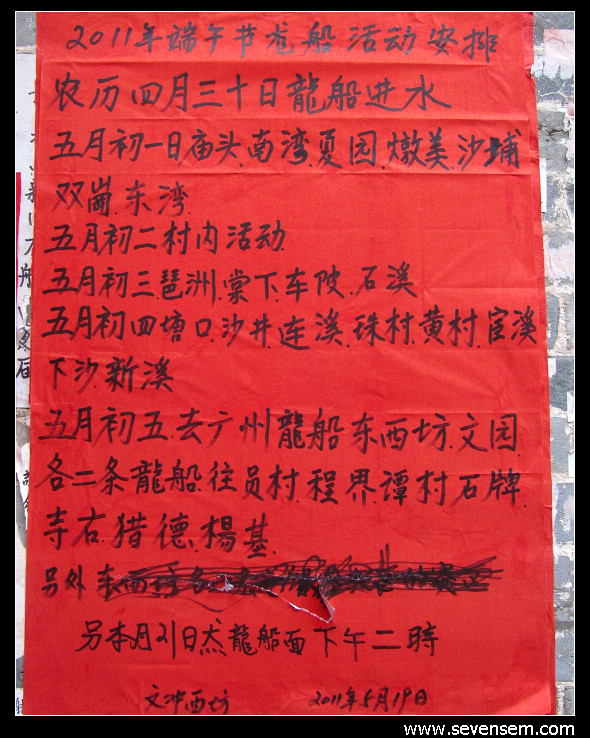 2011年端午节龙船活动安排
农历四月三十日龍船进水
五月初一日庙头.南湾.夏园.燉美.沙埔
双崗.东湾.
五月初二村内活动
五月初三琶洲.棠下.车陂.石溪
五月初四塘口.沙井.连溪.珠村.黄村.宦溪
下沙新溪
五月初五.去广州龍船东西坊.文园.
各二条龍船.往员村.程界.谭村.石牌.
寺右.猎德.楊基.
另外
另本月21日杰龍船面下午二時
文冲西坊 2011年5月19日
www.sevensem.com